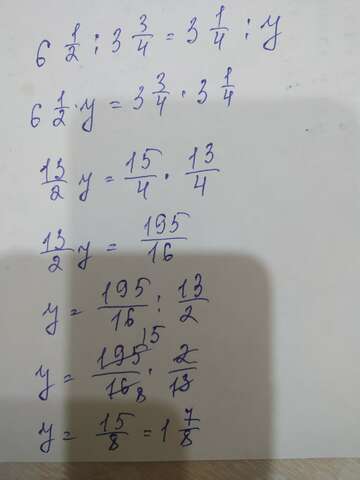 6 1/2 : 3 3/4 = 3 1/4 : y
6 1/2 · y = 3 3/4 · 3 1/4
13/2 y = 15/4 · 13/4
13/2 y = 195/16
y = 195/16 : 13/2
15
y = 195/16 8 · 2/13
y = 15/8 = 1 7/8